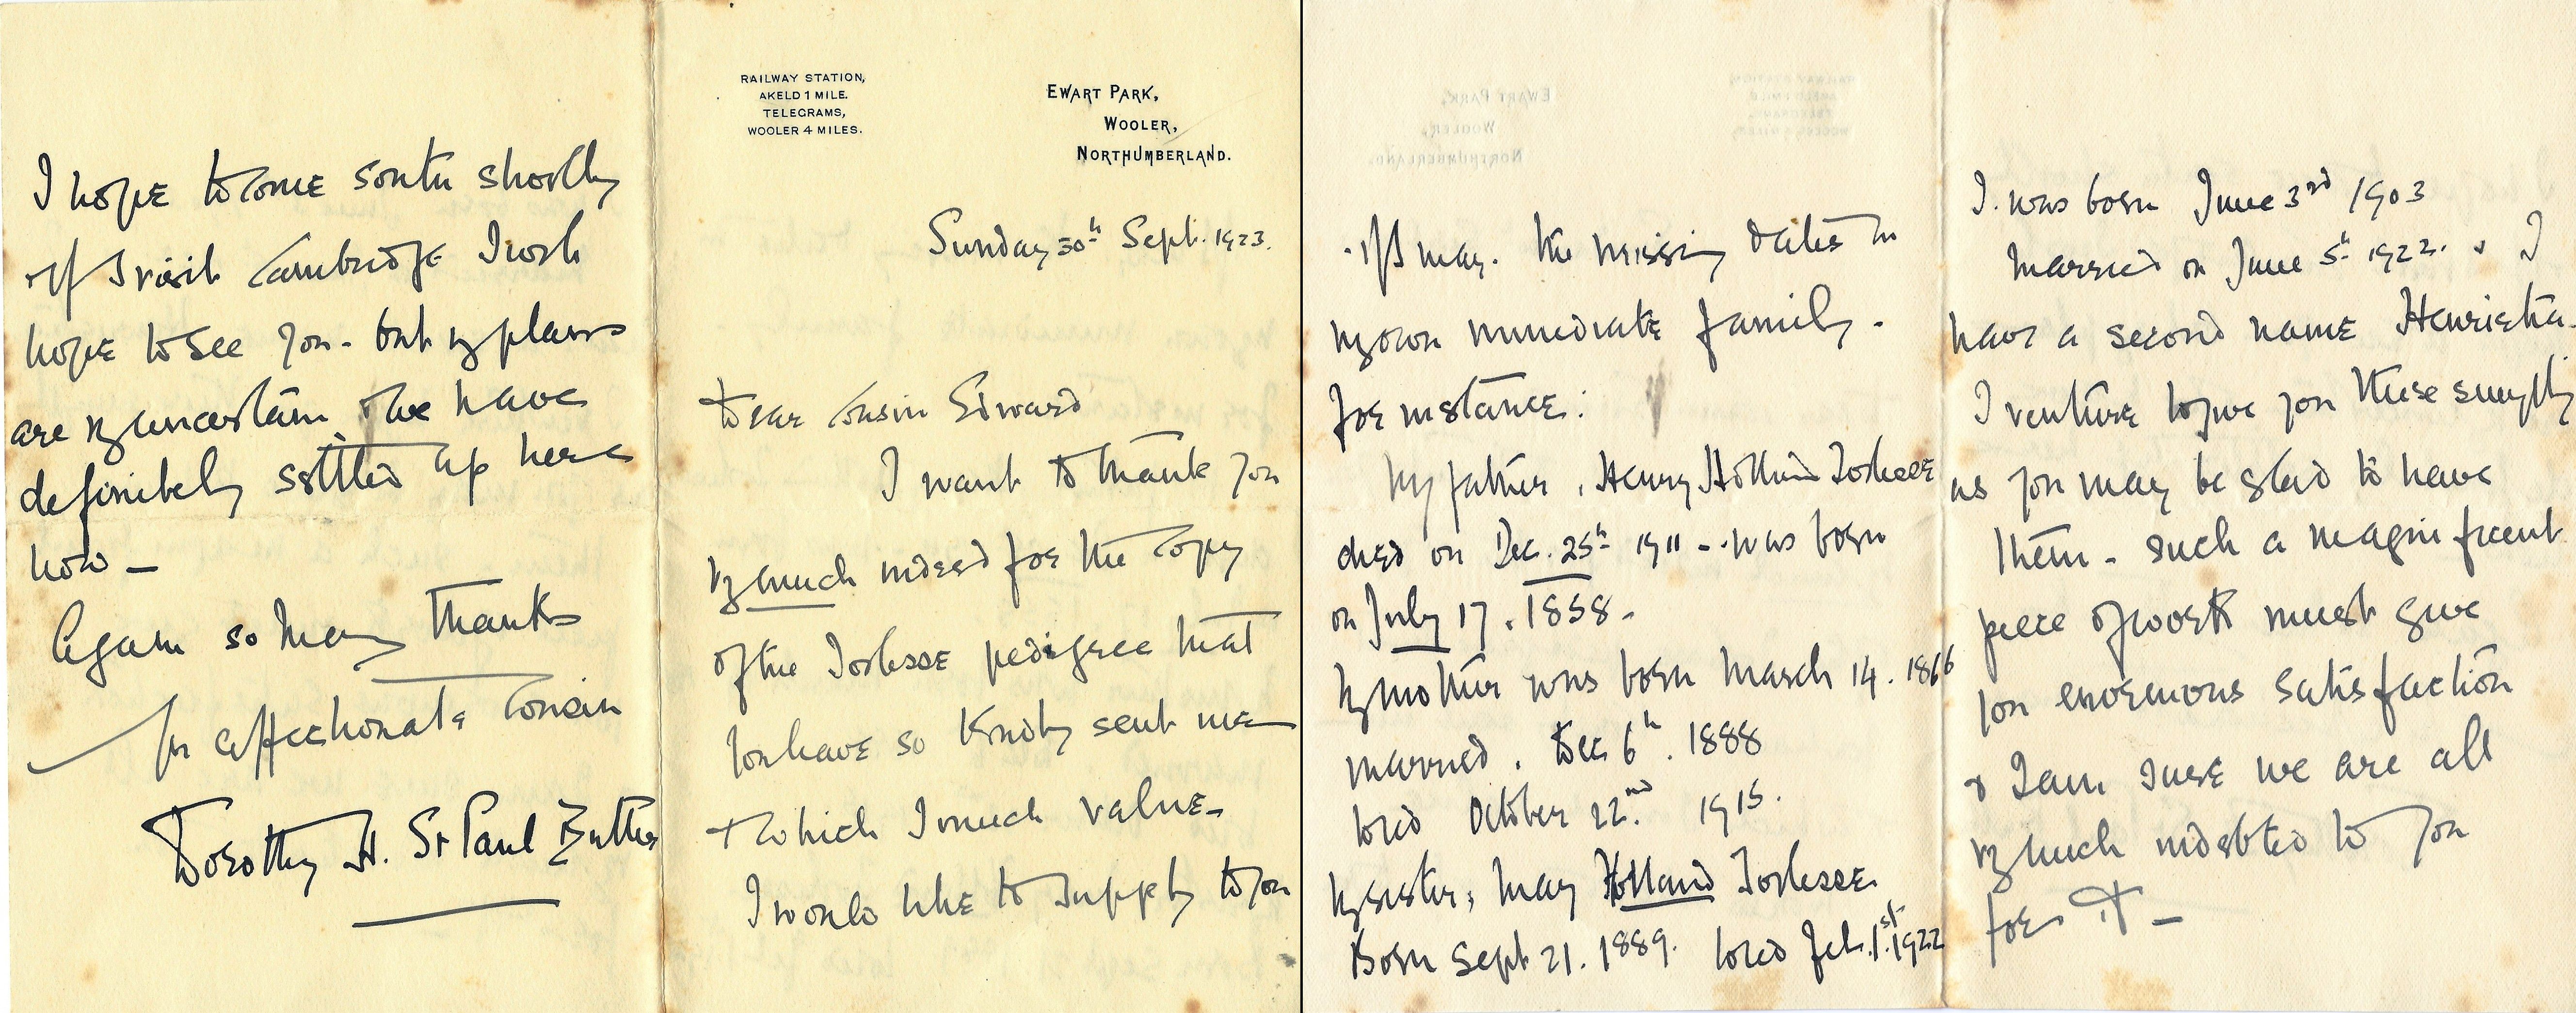 RAILWAY STATION,
AKELD 1 MILE.
TELEGRAMS,
WOOLER 4 MILES.
EWART PARK,
WOOLER,
NORTHUMBERLAND.
Sunday 30th Sept. 1923.
Dear Cousin Edward
I want to thank you
very much indeed for the copy
of the Torlesse pedigree that
you have so kindly sent me
& which I much value.
I would like to supply to you
if I may. the missing dates in
my own immediate family.
for instance:
My father, Henry Holland Torlesse
died on Dec. 25th 1911 - was born
on July 17. 1858.
My mother was born March 14. 1866
married. Dec 6th. 1888
died October 22nd. 1915.
My sister, May Holland Torlesse
Born Sept 21. 1889. died Feb. 1st. 1922
I was born June 3rd 1903
Married on June 5th 1922. & I
have a second name Henrietta.
I venture to give you these simply
as you may be glad to have
them - such a magnificent
piece of work must give
you enormous satisfaction
& I am sure we are all
very much indebted to you
for it -
I hope to come south shortly
& if I visit Cambridge I so
hope to see you - but my plans
are very uncertain. We have
definitely settled up here
now -
Again so many thanks
Yr affectionate Cousin
Dorothy H. St Paul Butler